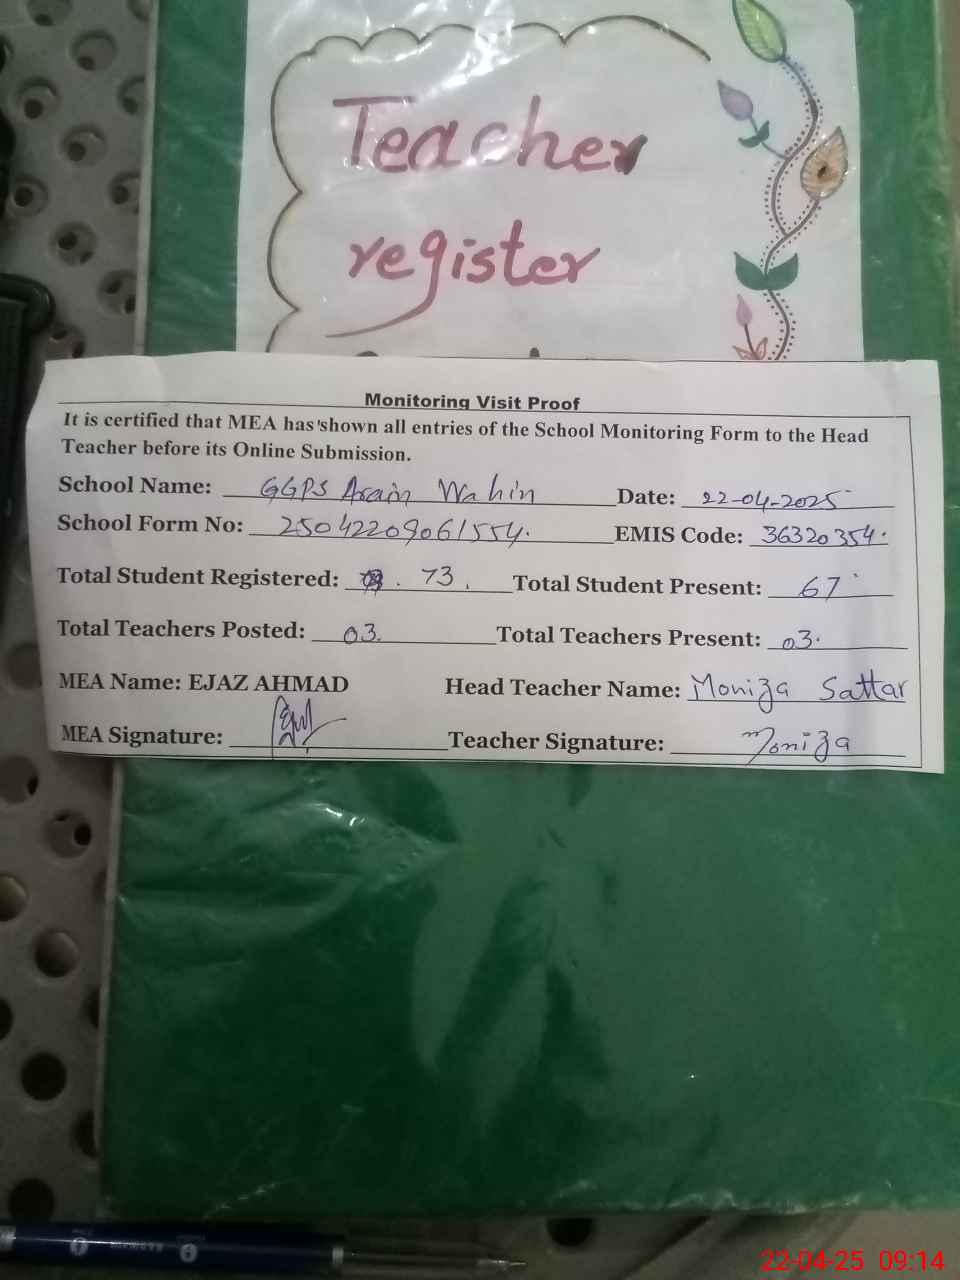 Teacher
register
Monitoring Visit Proof
It is certified that MEA has shown all entries of the School Monitoring Form to the Head
Teacher before its Online Submission.
School Name: GGPS Arain Wahin Date: 22-04-2025
School Form No: 25042209061554. EMIS Code: 36320354.
Total Student Registered: 73. Total Student Present: 67
Total Teachers Posted: 03. Total Teachers Present: 03.
MEA Name: EJAZ AHMAD Head Teacher Name: Moniza Sattar
MEA Signature: Teacher Signature: Moniza
22-04-25 09:14